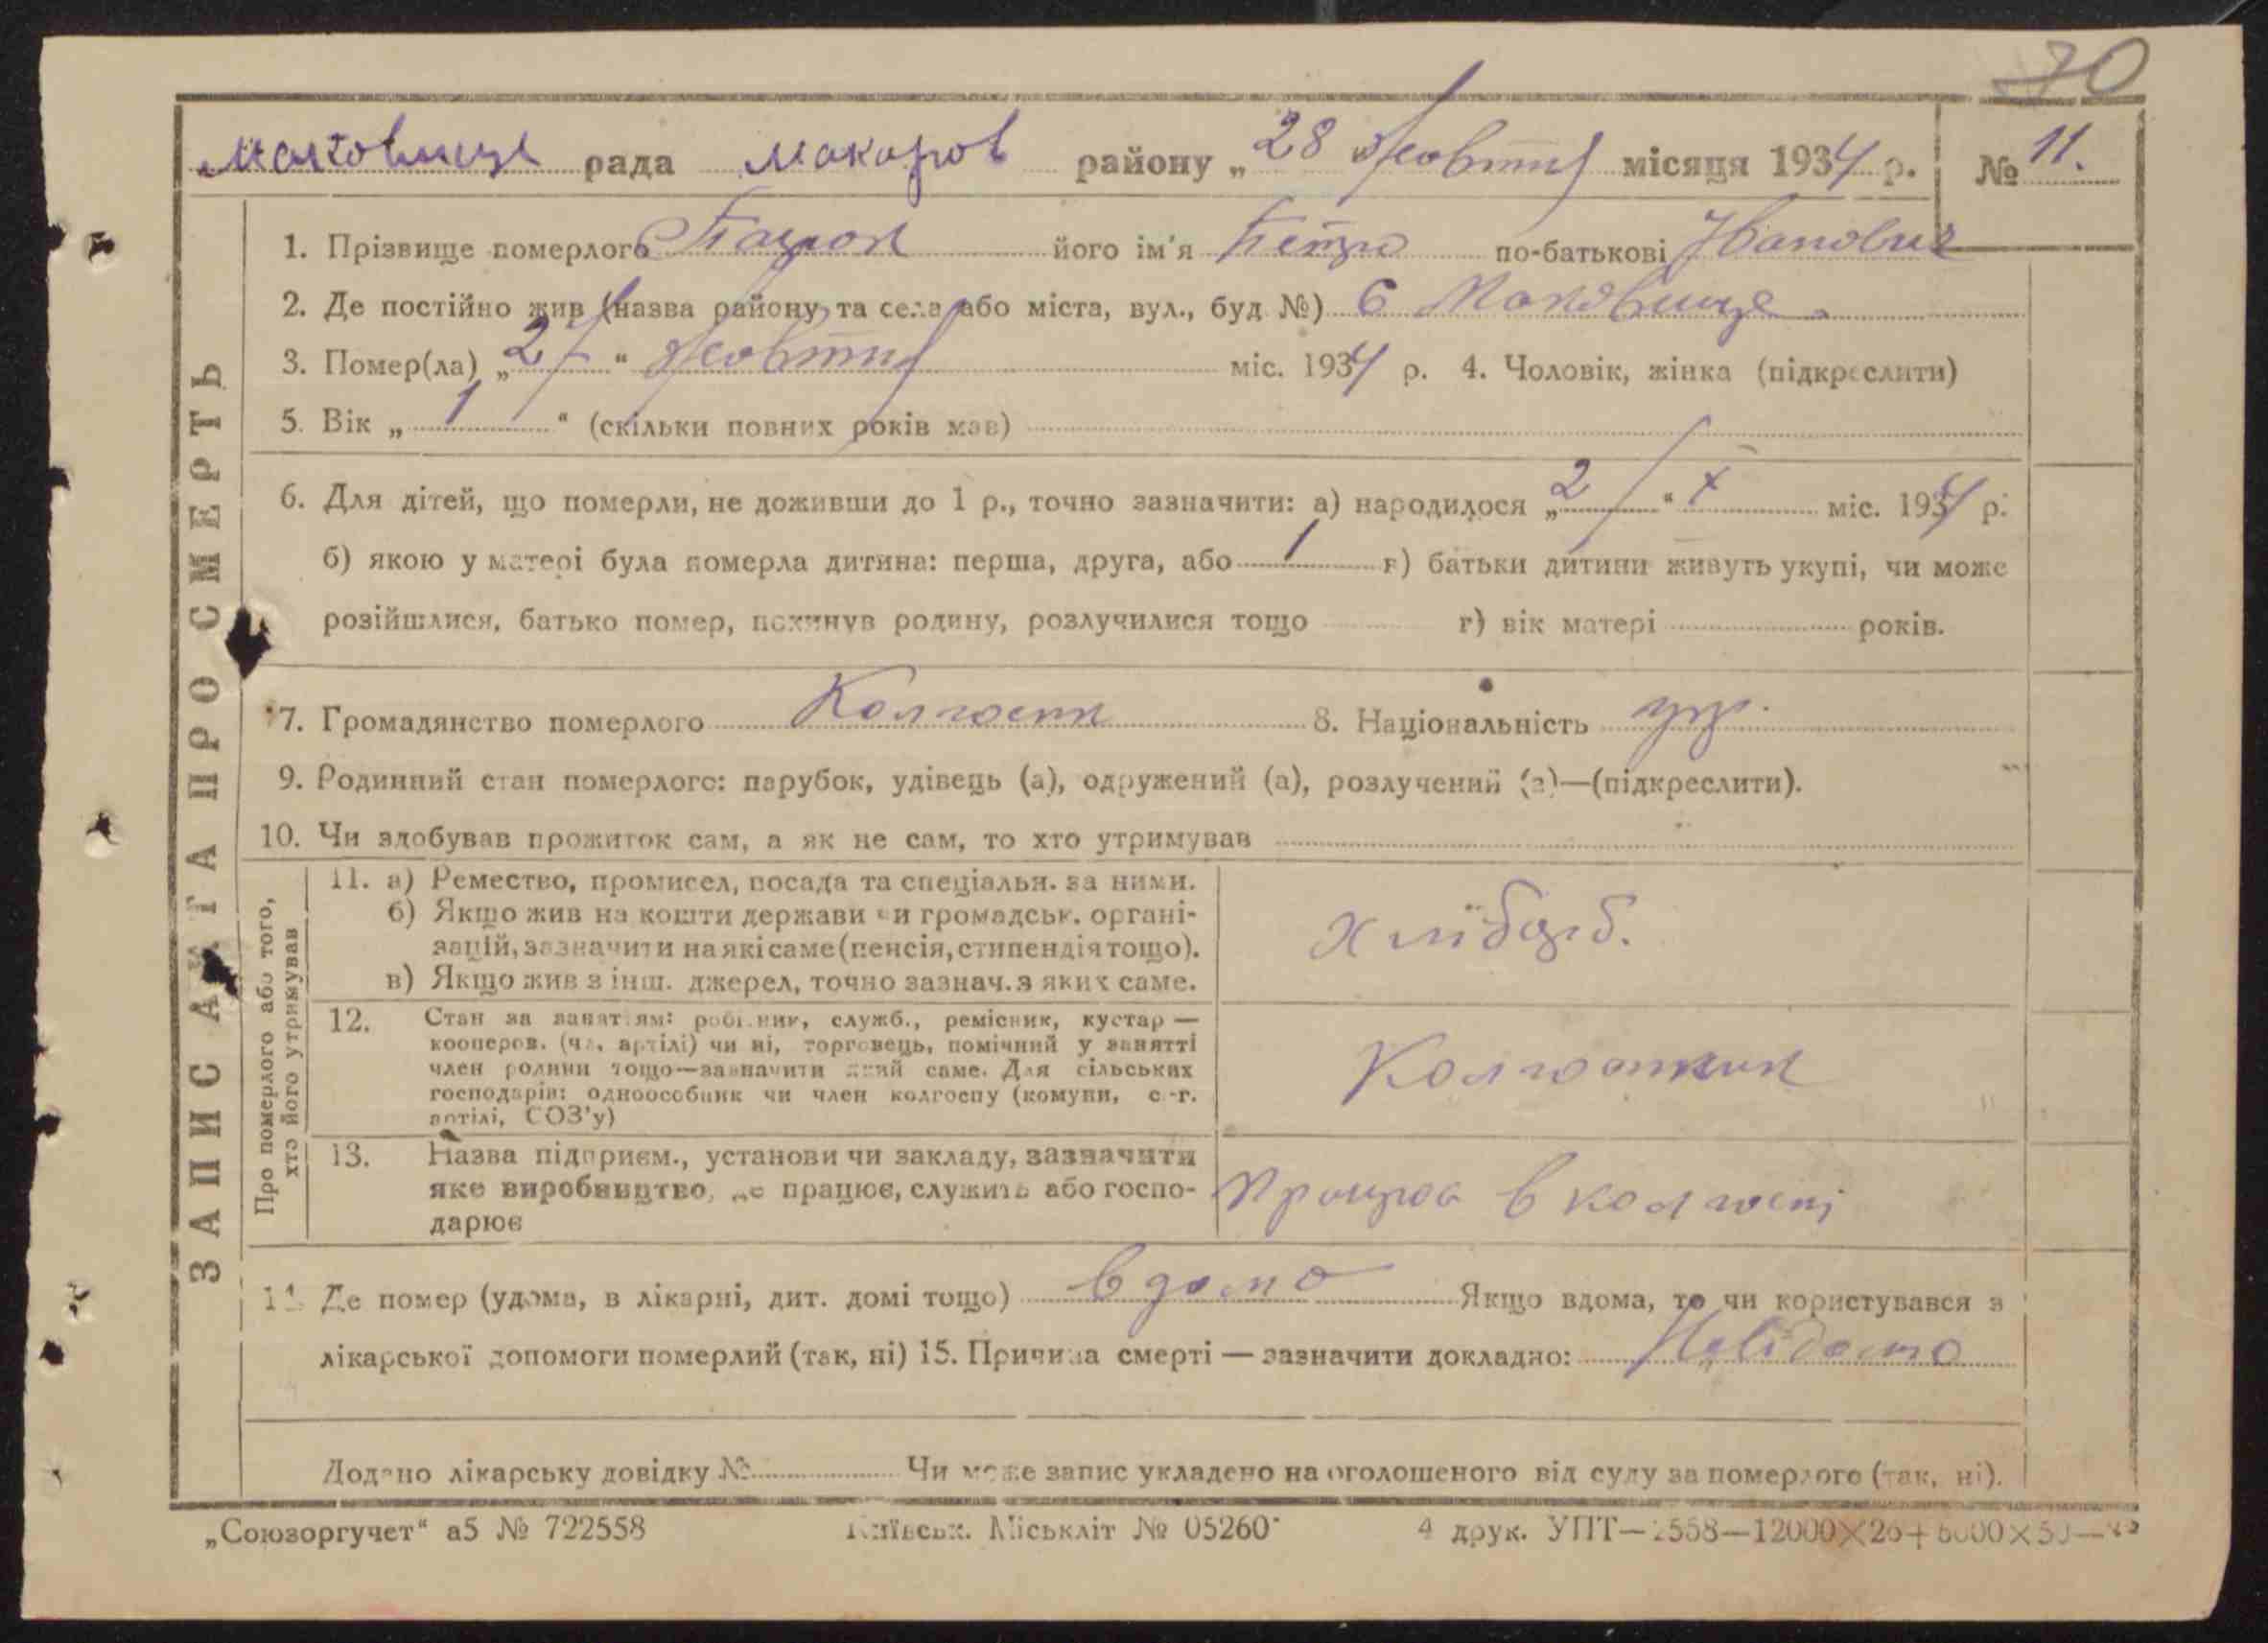 70
Маковище рада Макаров району „28 Жовтня місяця 1934 р. № 11.
1. Прізвище померлого його ім'я Петро по-батькові Іванович
2. Де постійно жив (назва району та села або міста, вул., буд №) С Маковище
3. Помер(ла) „27“ Жовтня міс. 1934 р. 4. Чоловік, жінка (підкреслити)
5. Вік „1“ (скільки повних років мав)
6. Для дітей, що померли, не доживши до 1 р., точно зазначити: а) народилося „2/“ X міс. 1934 р.
б) якою у матері була померла дитина: перша, друга, або 1 в) батьки дитини живуть укупі, чи може
розійшлися, батько помер, покинув родину, розлучилися тощо г) вік матері років.
7. Громадянство померлого Колгосп 8. Національність укр.
9. Родинний стан померлого: парубок, удівець (а), одружений (а), розлучений (а)—(підкреслити).
10. Чи здобував прожиток сам, а як не сам, то хто утримував
11. а) Ремество, промисел, посада та спеціальн. за ними.
б) Якщо жив на кошти держави чи громадськ. органі-
зацій, зазначити на які саме (пенсія, стипендія тощо).
в) Якщо жив з інш. джерел, точно зазнач. з яких саме.
Хлібороб.
12. Стан за заняттям: робітник, служб., ремісник, кустар —
кооперов. (чл. артілі) чи ні, торговець, помічний у занятті
член родини тощо—зазначити який саме. Для сільських
господарів: одноосібник чи член колгоспу (комуни, с.-г.
артілі, СОЗ'у)
Колгоспник
13. Назва підприєм., установи чи закладу, зазначити
яке виробництво, де працює, служить або госпо-
дарює
Працює в колгоспі
14. Де помер (удома, в лікарні, дит. домі тощо) вдома Якщо вдома, то чи користувався з
лікарської допомоги померлий (так, ні) 15. Причина смерті — зазначити докладно: Невідомо
Додано лікарську довідку № Чи може запис укладено на оголошеного від суду за померлого (так, ні).
„Союзоргучет“ а5 № 722558 Київськ. Міськліт № 05260 4 друк. УПТ—2558—12000×26+
ЗАПИС АКТА ПРО СМЕРТЬ
Про померлого або того,
хто його утримував